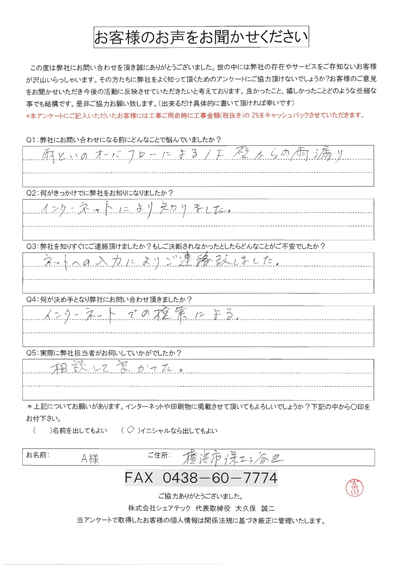 お客様のお声をお聞かせください
この度は弊社にお問い合わせを頂き誠にありがとうございました。世の中には弊社の存在やサービスをご存知ないお客様
が沢山いらっしゃいます。その方たちに弊社をよく知って頂くためのアンケートにご協力頂けないでしょうか?お客様のご意見
をお聞かせいただき今後の活動に反映させていただきたいと考えております。良かったこと、嬉しかったことどのような些細な
事でも結構です。是非ご協力お願い致します。(出来るだけ具体的に書いて頂ければ幸いです)
*本アンケートにご記入いただいたお客様には工事ご用命時に工事金額(税抜き)の2%をキャッシュバックさせていただきます。
Q1:弊社にお問い合わせになる前にどんなことで悩んでいましたか?
雨といのオーバーフローによる1F壁からの雨漏り
Q2:何がきっかけでに弊社をお知りになりましたか?
インターネットにより知りました。
Q3:弊社を知りすぐにご連絡頂けましたか?もしご決断されなかったとしたらどんなことがご不安でしたか?
ネットへの入力によりご連絡致しました。
Q4:何が決め手となり弊社にお問い合わせ頂きましたか?
インターネットでの検索による。
Q5:実際に弊社担当者がお伺いしていかがでしたか?
相談して良かった。
*上記についてお願いがあります。インターネットや印刷物に掲載させて頂いてもよろしいでしょうか?下記の中から〇印を
お付下さい。
( )名前を出してもよい (〇)イニシャルなら出してもよい
お名前: A様 ご住所: 横浜市保土ヶ谷区
FAX 0438-60-7774
ご協力ありがとうございました。
株式会社シェアテック 代表取締役 大久保 誠二
当アンケートで取得したお客様の個人情報は関係法規に基づき厳正に管理いたします。